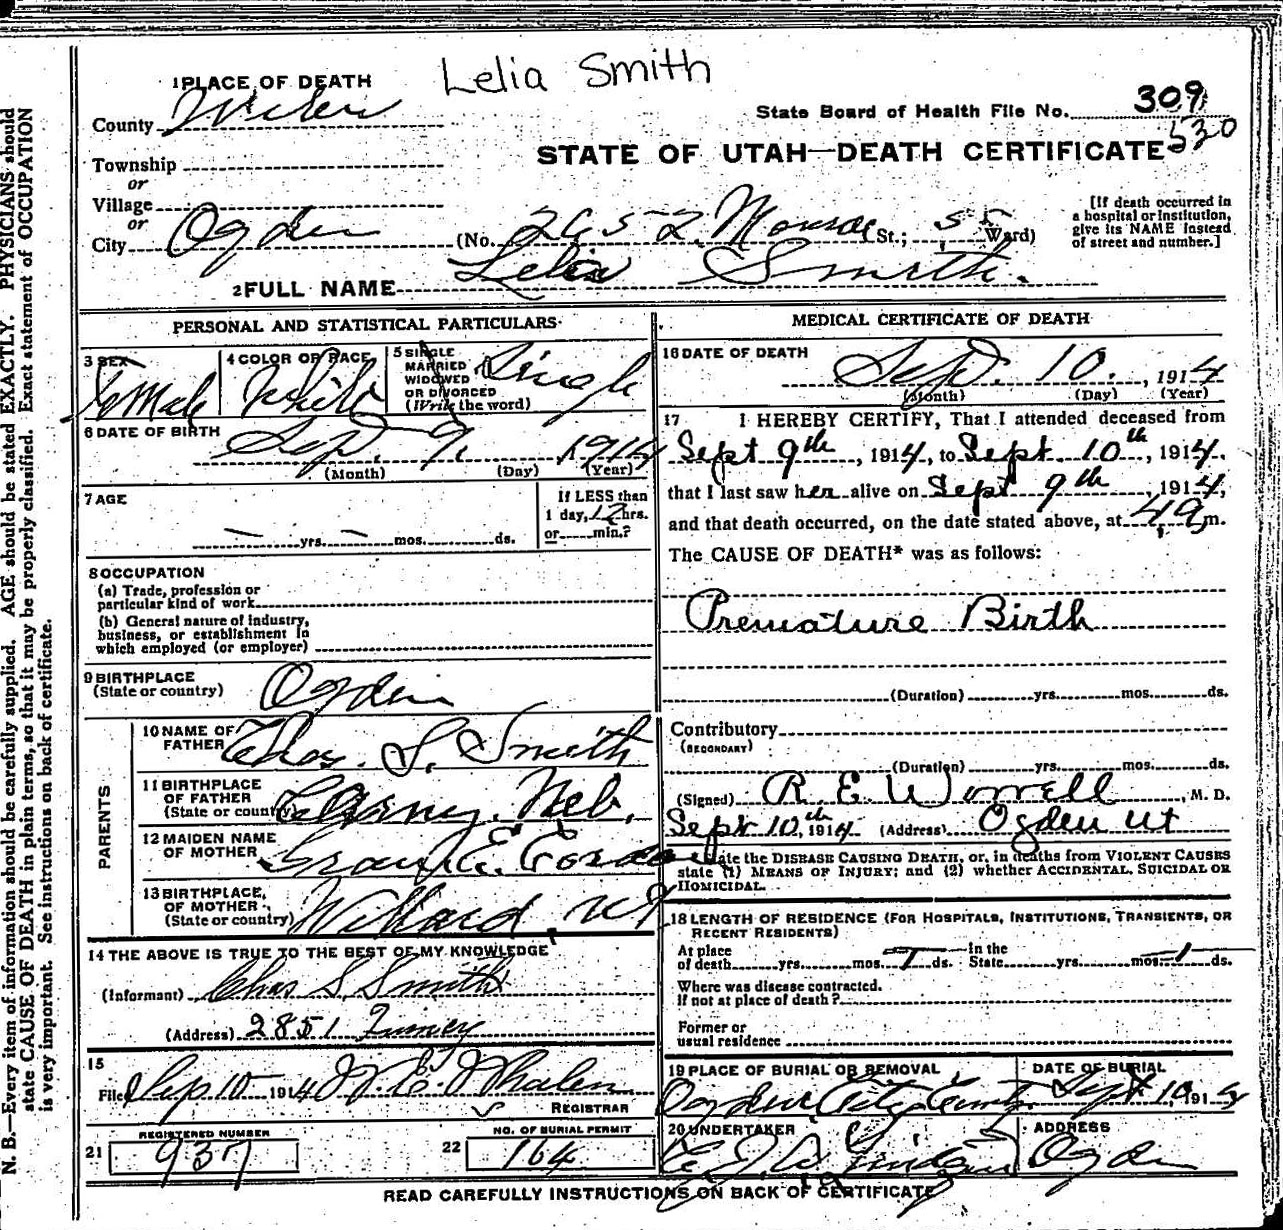 Lelia Smith
1 PLACE OF DEATH
County Weber
State Board of Health File No. 309
530
STATE OF UTAH—DEATH CERTIFICATE
Township
or
Village
or
City Ogden
(No. 2652 Monroe St.; 5 Ward)
[If death occurred in
a hospital or institution,
give its NAME instead
of street and number.]
2 FULL NAME Lelia Smith.
PERSONAL AND STATISTICAL PARTICULARS
3 SEX
Female
4 COLOR OR RACE
White
5 SINGLE
MARRIED
WIDOWED
OR DIVORCED
(Write the word)
Single
6 DATE OF BIRTH
Sep. 9, 1914
(Month) (Day) (Year)
7 AGE
yrs. mos. ds.
If LESS than
1 day, 12 hrs.
or min.?
8 OCCUPATION
(a) Trade, profession or
particular kind of work
(b) General nature of industry,
business, or establishment in
which employed (or employer)
9 BIRTHPLACE
(State or country)
Ogden
PARENTS
10 NAME OF
FATHER
Chas. S. Smith
11 BIRTHPLACE
OF FATHER
(State or country)
Neb.
12 MAIDEN NAME
OF MOTHER
E.
13 BIRTHPLACE,
OF MOTHER
(State or country)
Willard, Ut
14 THE ABOVE IS TRUE TO THE BEST OF MY KNOWLEDGE
(Informant) Chas S. Smith
(Address) 2851
15
Filed Sep 10 1914
Whalen
REGISTRAR
21
REGISTERED NUMBER
937
22
NO. OF BURIAL PERMIT
164
MEDICAL CERTIFICATE OF DEATH
16 DATE OF DEATH
Sep. 10., 1914
(Month) (Day) (Year)
17 I HEREBY CERTIFY, That I attended deceased from
Sept 9th, 1914, to Sept. 10th, 1914.
that I last saw her alive on Sept 9th, 1914,
and that death occurred, on the date stated above, at 4 a m.
The CAUSE OF DEATH* was as follows:
Premature Birth
(Duration) yrs. mos. ds.
Contributory
(SECONDARY)
(Duration) yrs. mos. ds.
(Signed) R. E. Worrell, M. D.
Sept 10th, 1914 (Address) Ogden Ut
State the DISEASE CAUSING DEATH, or, in deaths from VIOLENT CAUSES
state (1) MEANS OF INJURY; and (2) whether ACCIDENTAL, SUICIDAL OR
HOMICIDAL.
18 LENGTH OF RESIDENCE (FOR HOSPITALS, INSTITUTIONS, TRANSIENTS, OR
RECENT RESIDENTS)
At place
of death yrs. mos. 1 ds.
In the
State yrs. mos. 1 ds.
Where was disease contracted.
if not at place of death?
Former or
usual residence
19 PLACE OF BURIAL OR REMOVAL
Ogden City
DATE OF BURIAL
Sept 10 191
20 UNDERTAKER
ADDRESS
Ogden
READ CAREFULLY INSTRUCTIONS ON BACK OF CERTIFICATE
N. B.—Every item of information should be carefully supplied. AGE should be stated EXACTLY. PHYSICIANS should
state CAUSE OF DEATH in plain terms, so that it may be properly classified. Exact statement of OCCUPATION
is very important. See instructions on back of certificate.